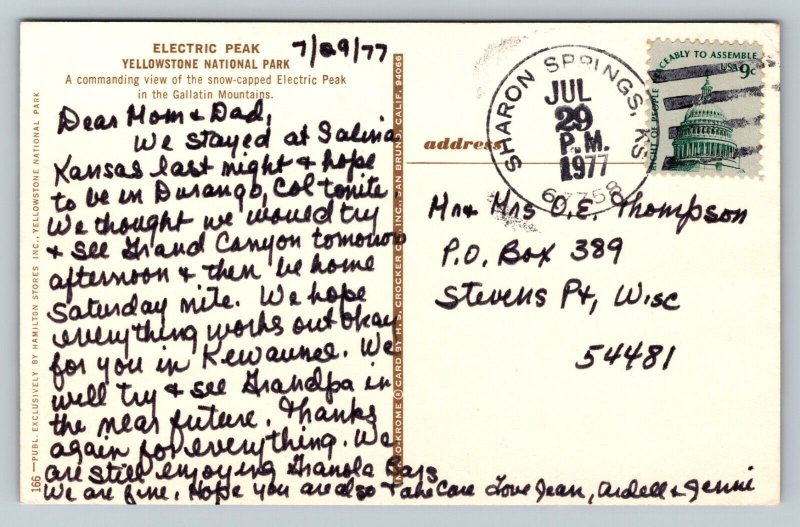 ELECTRIC PEAK
YELLOWSTONE NATIONAL PARK
A commanding view of the snow-capped Electric Peak
in the Gallatin Mountains.
7/29/77
Dear Mom & Dad,
We stayed at Salina
Kansas last night & hope
to be in Durango, Col tonite.
We thought we would try
& see Grand Canyon tomorrow
afternoon & then be home
Saturday nite. We hope
everything works out okay
for you in Kewaunee. We
will try & see Grandpa in
the near future. Thanks
again for everything. We
are still enjoying Granola Bars
We are fine. Hope you are also Take Care Love Jean, Ardell & Jenni
166—PUBL. EXCLUSIVELY BY HAMILTON STORES INC., YELLOWSTONE NATIONAL PARK
CARD BY H.S. CROCKER CO., INC., SAN BRUNO, CALIF. 94066
address
SHARON SPRINGS, KS
JUL
29
P.M.
1977
67758
CEABLY TO ASSEMBLE
USA 9c
RIGHT OF PEOPLE
Mr & Mrs O.E. Thompson
P.O. Box 389
Stevens Pt, Wisc
54481